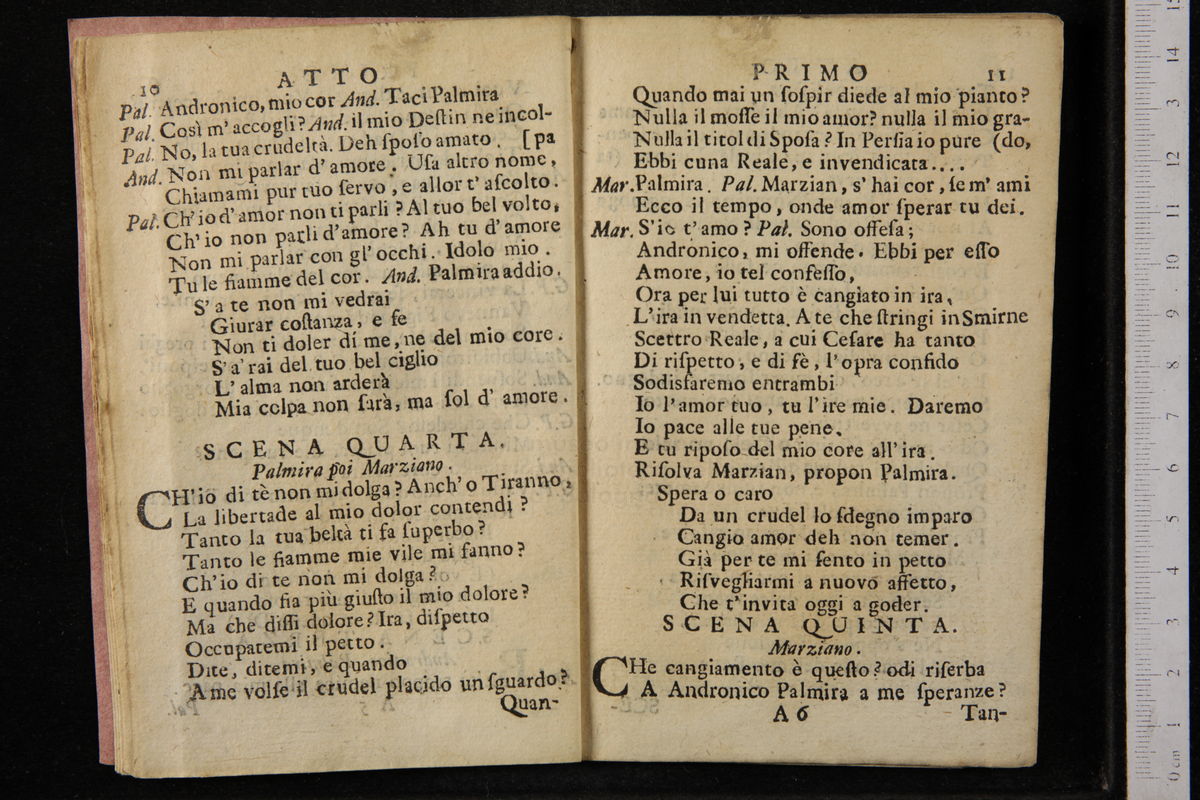 10
ATTO
Pal. Andronico, mio cor And. Taci Palmira
Pal. Così m' accogli? And. il mio Deſtin ne incol-
Pal. No, la tua crudeltà. Deh ſpoſo amato. [pa
And. Non mi parlar d' amore. Uſa altro nome,
Chiamami pur tuo ſervo, e allor t' aſcolto.
Pal. Ch' io d' amor non ti parli? Al tuo bel volto,
Ch' io non parli d'amore? Ah tu d' amore
Non mi parlar con gl' occhi. Idolo mio.
Tu le fiamme del cor. And. Palmira addio.
S' a te non mi vedrai
Giurar coſtanza, e fe
Non ti doler di me, ne del mio core.
S' a' rai del tuo bel ciglio
L' alma non arderà
Mia colpa non ſarà, ma ſol d' amore.
SCENA QUARTA.
Palmira poi Marziano.
CH'io di tè non mi dolga? Anch' o Tiranno,
La libertade al mio dolor contendi?
Tanto la tua beltà ti fa ſuperbo?
Tanto le fiamme mie vile mi fanno?
Ch' io di te non mi dolga?
E quando fia più giuſto il mio dolore?
Ma che diſſi dolore? Ira, diſpetto
Occupatemi il petto.
Dite, ditemi, e quando
A me volſe il crudel placido un ſguardo?
Quan-
PRIMO
11
Quando mai un ſoſpir diede al mio pianto?
Nulla il moſſe il mio amor? nulla il mio gra-
Nulla il titol di Spoſa? In Perſia io pure (do,
Ebbi cuna Reale, e invendicata....
Mar. Palmira. Pal. Marzian, s' hai cor, ſe m' ami
Ecco il tempo, onde amor ſperar tu dei.
Mar. S'io t' amo? Pal. Sono offeſa;
Andronico, mi offende. Ebbi per eſſo
Amore, io tel confeſſo,
Ora per lui tutto è cangiato in ira,
L'ira in vendetta. A te che ſtringi in Smirne
Scettro Reale, a cui Ceſare ha tanto
Di riſpetto, e di fè, l'opra confido
Sodisfaremo entrambi
Io l'amor tuo, tu l'ire mie. Daremo
Io pace alle tue pene,
E tu ripoſo del mio core all' ira.
Riſolva Marzian, propon Palmira.
Spera o caro
Da un crudel lo ſdegno imparo
Cangio amor deh non temer.
Già per te mi ſento in petto
Riſvegliarmi a nuovo affetto,
Che t'invita oggi a goder.
SCENA QUINTA.
Marziano.
CHe cangiamento è queſto? odi riſerba
A Andronico Palmira a me ſperanze?
A 6
Tan-